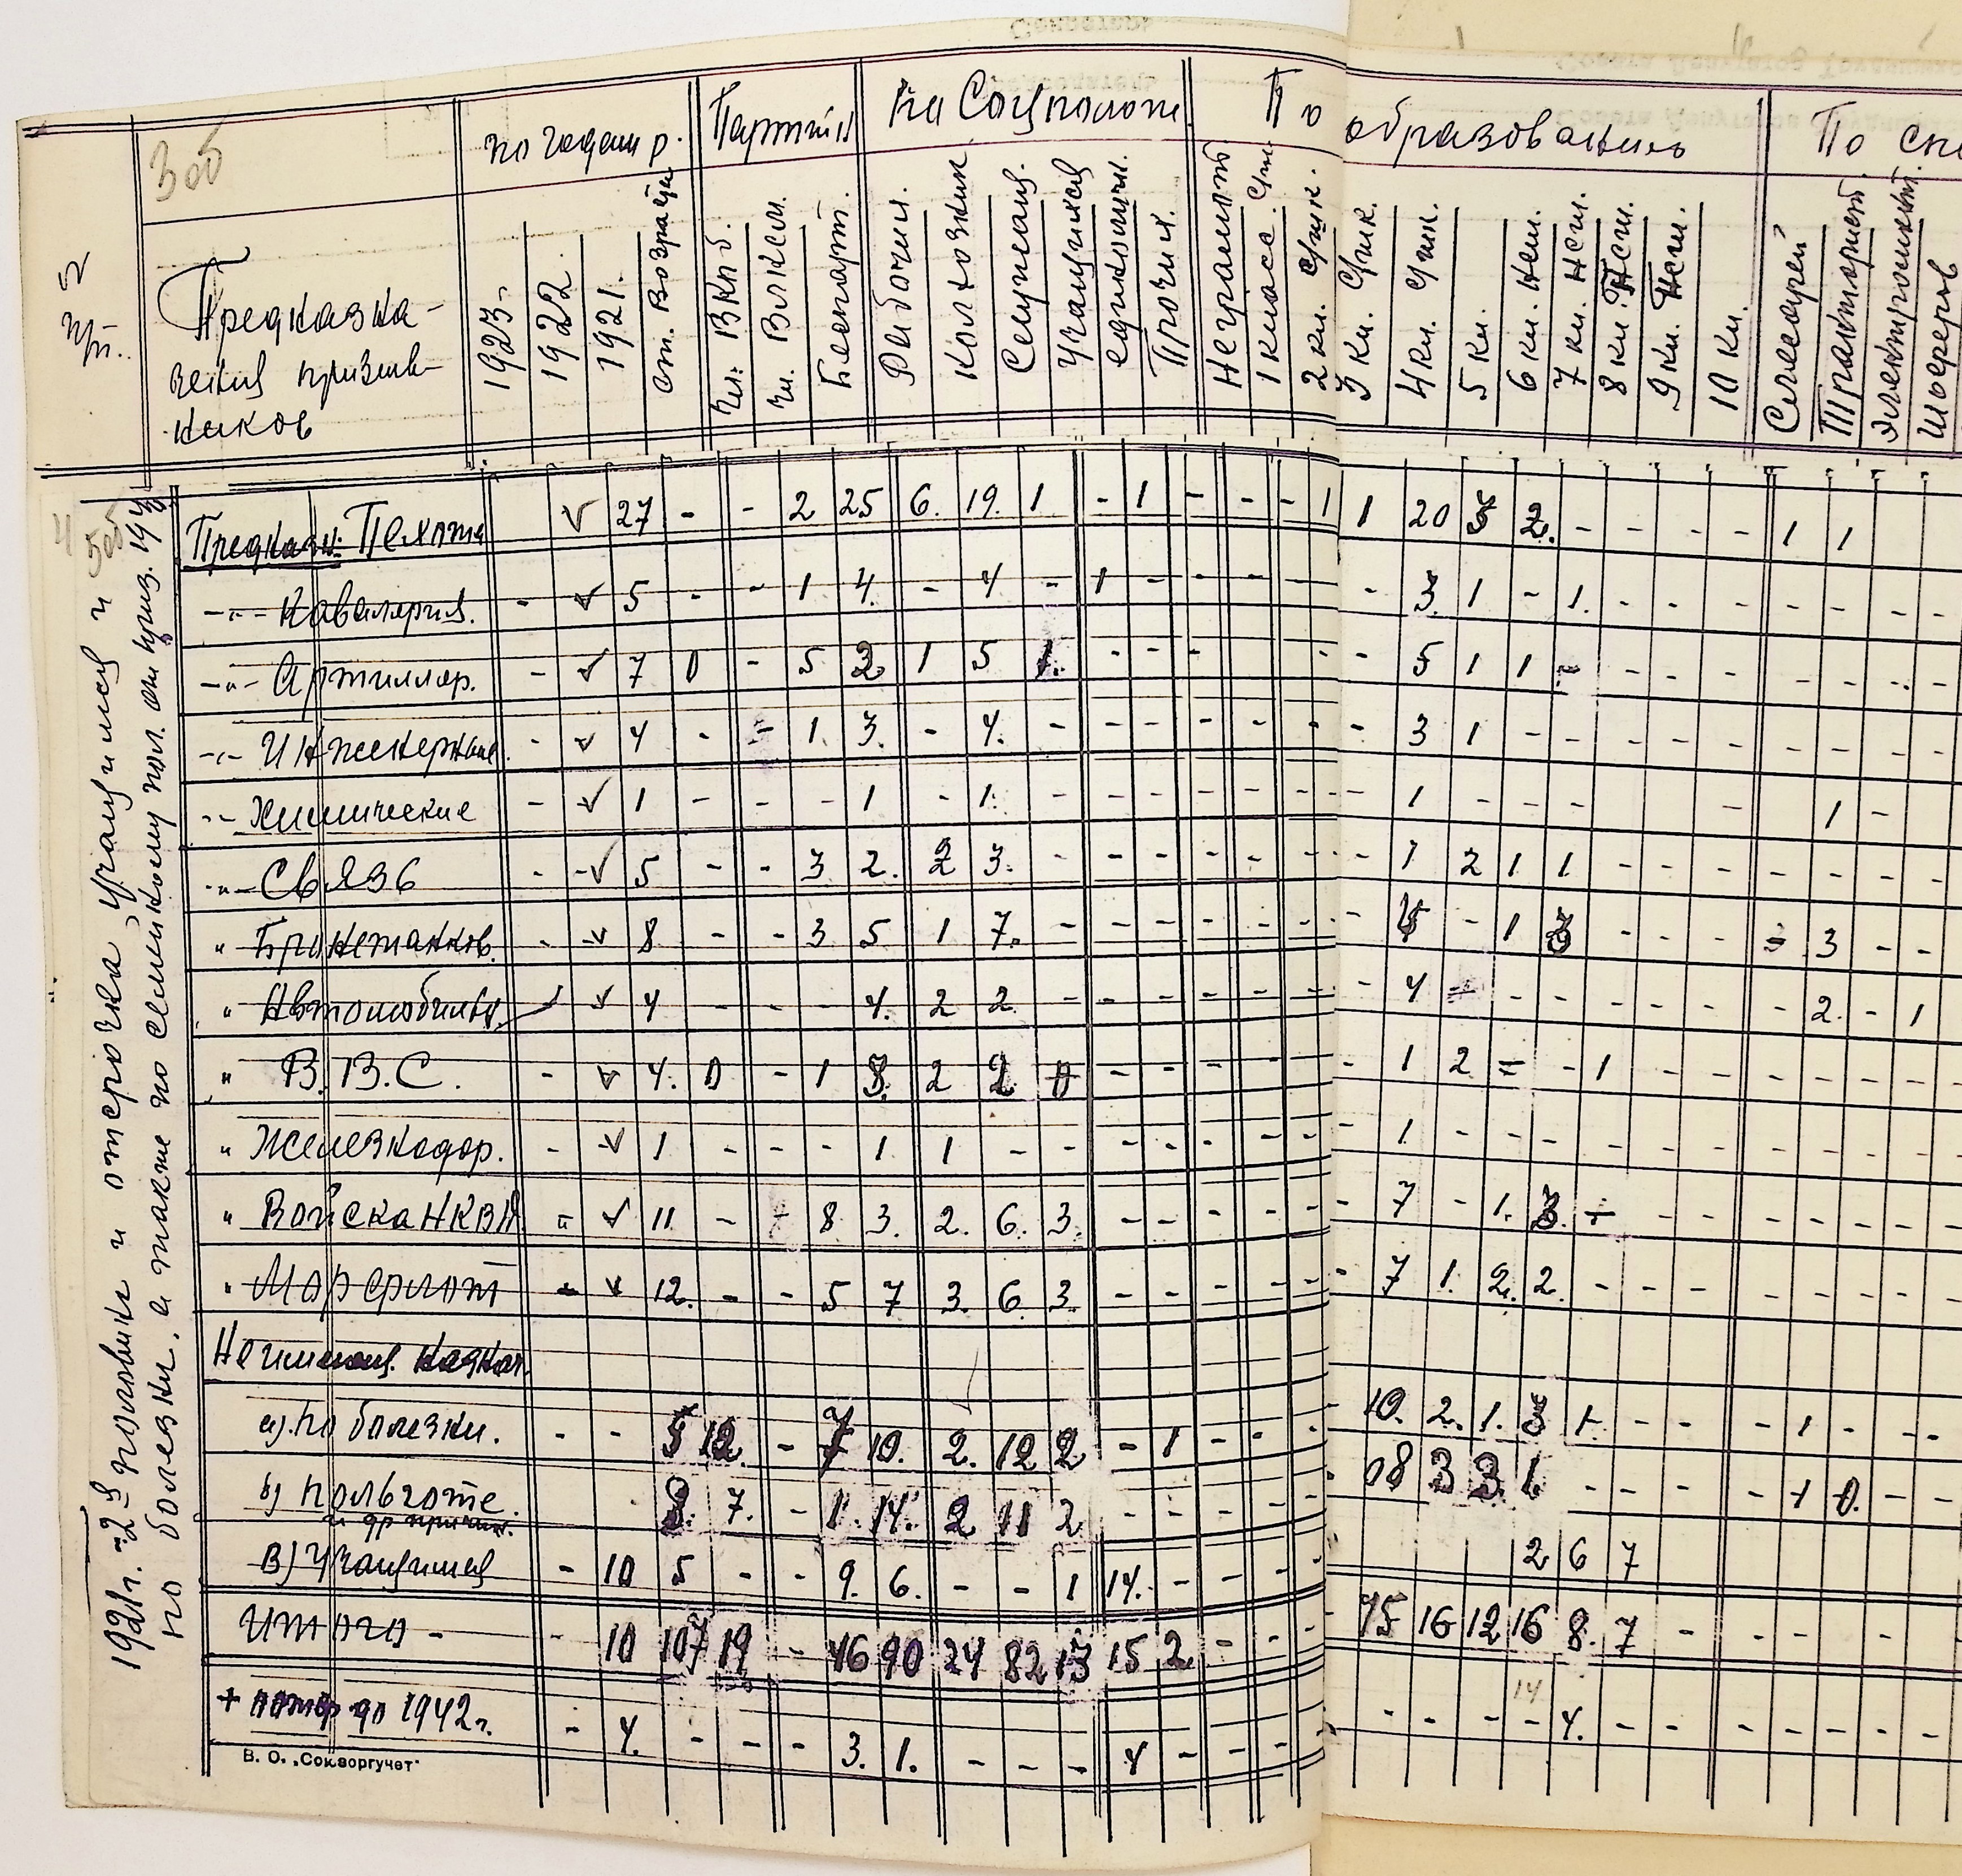 Зоб
по годам р.
Партийн
на Соцположе
По образованию
По спе
№ пп.
Предказна-
чения призыв-
ников
1923.
1922
1921.
ст. Возраста
Чл. ВКПб.
Чл. ВЛКСМ.
Беспарт.
Рабочих.
Колхозник
Служащ.
Учащихся
единолич.
Прочих.
Неграмот
1 класс. С/шк.
2 кл. С/шк.
3 кл. С/шк.
4 кл. С/шк.
5 кл.
6 кл. нсш.
7 кл. нсш.
8 кл. нсш.
9 кл. нсш.
10 кл.
Слесарей
Тракторист
Электромонт.
Шоферов
Предказн: Пехота V 27 - - 2 25 6. 19. 1 - 1 - - - 1 1 20 3 2. - - - - 1 1
-"- Кавалерия. - V 5 - - 1 4. - 4 - 1 - - - - - 3. 1 - 1. - - - - - - -
-"- Артиллер. - V 7 0 - 5 2. 1 5 1. - - - - - 5 1 1 - - - - - - - -
-"- Инженерные. - V 4 - - 1 3. - 4. - - - - - - - 3 1 - - - - - - - - -
-"- Химические - V 1 - - - 1 - 1. - - - - - - - 1 - - - - 1 -
-"- Связь - - V 5 - - 3 2. 2 3. - - - - - - - 1 2 1 1 - - - - - - -
" Бронетанков. - V 8 - - 3 5 1 7. - - - - - - - 4 - 1 3 - - - - 3 - -
" Автомобильн. - V 4 - - - 4. 2 2 - - - - - - - 4 - - - - - - - 2. - 1
" В.В.С. - V 4. 0 - 1 3. 2 2 0 - - - - - - 1 2 - - 1 - - - - - - -
" Железнодор. - V 1 - - - 1 1 - - - - - - - - - 1. - - - - - - - - - -
" Войска НКВД - V 11 - - 8 3. 2. 6. 3. - - - - - - 7 - 1. 3. - - - - - - - -
" Морфлот - V 12. - - 5 7 3. 6. 3. - - - - - - 7 1. 2. 2. - - - - - - -
а) по болезни. - - 5 12. - 7 10. 2. 12 2 - 1 - - - 10. 2. 1. 3 1. - - - 1 - -
б) По льготе. 8. 7. - 1. 14. 2 11 2 - - - - - 08 3 3. 1. - - - - 1 0. - -
и др причин.
в) Учащимся - 10 5 - - 9. 6. - - 1 14. - - - - 2 6 7
Итого - - 10 107 19 - 46 90 24 82 13 15 2 - - - - 75 16 12 16 8. 7 - - - - -
14
+ отср до 1942 г. - 4. - - - 3. 1. - - - 4 - - - - - - - - 4. - - - - - - -
В. О. „Союзоргучет"
1921 г. -2 3 половики и отсрочка учащимся и
по болезни, а также по семейному пол. от приз. 194